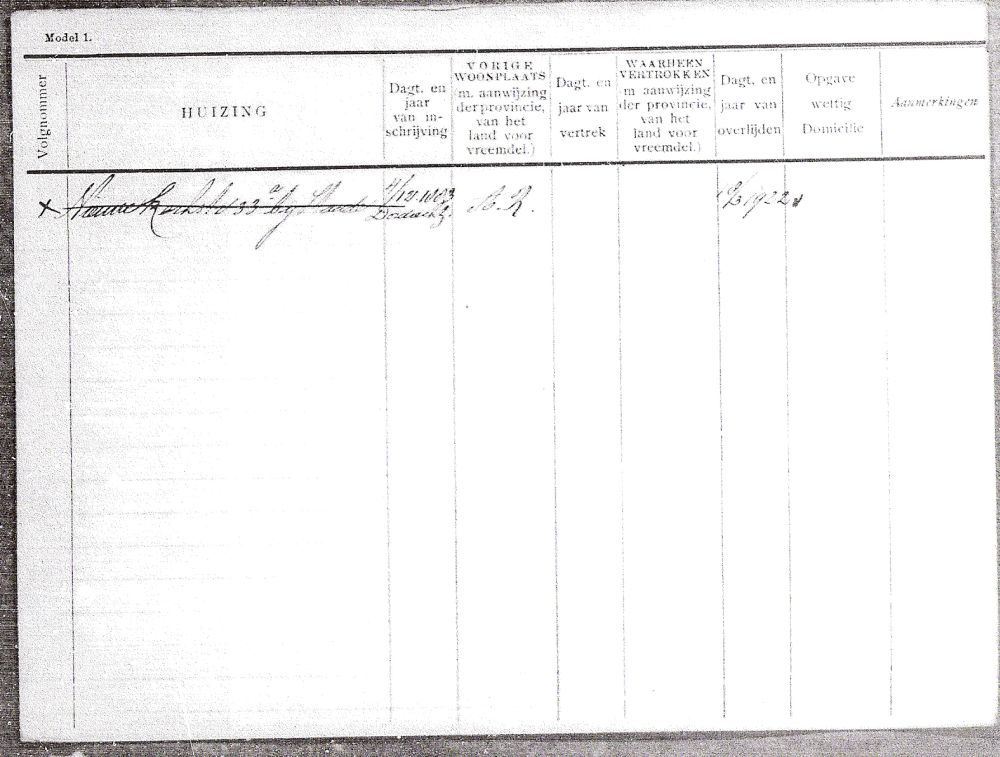 Model 1.
Volgnommer
HUIZING
Dagt. en
jaar
van in-
schrijving
VORIGE
WOONPLAATS
(m. aanwijzing
der provincie,
van het
land voor
vreemdel.)
Dagt. en
jaar van
vertrek
WAARHEEN
VERTROKKEN
(m aanwijzing
der provincie,
van het
land voor
vreemdel.)
Dagt. en
jaar van
overlijden
Opgave
wettig
Domicilie
Aanmerkingen
x 33a bij
Dordrecht
A. R.
1922